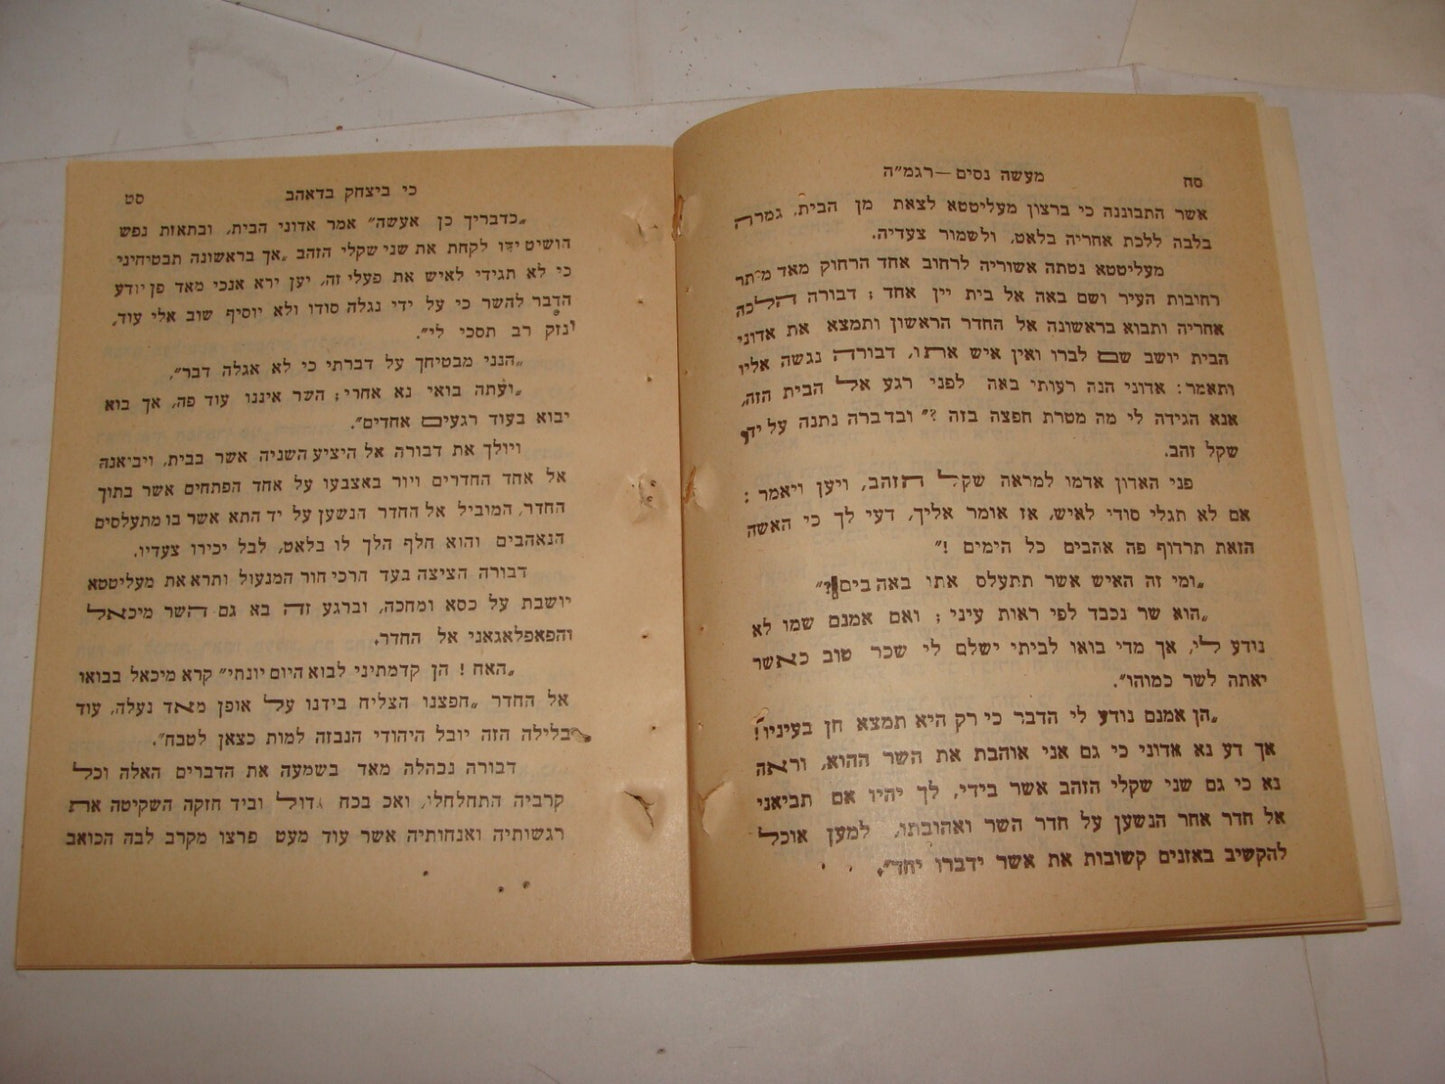 סח
מעשה נסים — רגמ״ה
אשר התבוננה כי ברצון מעליטטא לצאת מן הבית, גמרה
בלבה ללכת אחריה בלאט, ולשמור צעדיה.
מעליטטא נטתה אשוריה לרחוב אחד הרחוק מאד מיתר
רחובות העיר ושם באה אל בית יין אחד ; דבורה הלכה
אחריה ותבוא בראשונה אל החדר הראשון ותמצא את אדוני
הבית יושב שם לברו ואין איש אתו, דבורה נגשה אליו
ותאמר : אדוני הנה רעותי באה לפני רגע אל הבית הזה,
אנא הגידה לי מה מטרת חפצה בזה ?״ ובדברה נתנה על ידו
שקל זהב.
פני האדון אדמו למראה שקל הזהב, ויען ויאמר :
אם לא תגלי סודי לאיש, אז אומר אליך, דעי לך כי האשה
הזאת תרדוף פה אהבים כל הימים !״
„ומי זה האיש אשר תתעלס אתו באהבים?״
„הוא שר נכבד לפי ראות עיני ; ואם אמנם שמו לא
נודע לי, אך מדי בואו לביתי ישלם לי שכר טוב כאשר
יאתה לשר כמוהו״.
„הן אמנם נודע לי הדבר כי רק היא תמצא חן בעיניו!
אך דע נא אדוני כי גם אני אוהבת את השר ההוא, וראה
נא כי גם שני שקלי הזהב אשר בידי, לך יהיו אם תביאני
אל חדר אחר הנשען על חדר השר ואהובתו, למען אוכל
להקשיב באזנים קשובות את אשר ידברו יחד״.
כי ביצחק בדאהב
סט
„כדבריך כן אעשה״ אמר אדוני הבית, ובתאות נפש
הושיט ידו לקחת את שני שקלי הזהב „אך בראשונה תבטיחיני
כי לא תגידי לאיש את פעלי זה, יען ירא אנכי מאד פן יודע
הדבר להשר כי על ידי נגלה סודו ולא יוסיף שוב אלי עוד,
ונזק רב תסכי לי״.
„הנני מבטיחך על דברתי כי לא אגלה דבר״,
„ועתה בואי נא אחרי; השר איננו עוד פה, אך בוא
יבוא בעוד רגעים אחדים״.
ויולך את דבורה אל היציע השניה אשר בבית, ויביאנה
אל אחד החדרים ויור באצבעו על אחד הפתחים אשר בתוך
החדר, המוביל אל החדר הנשען על יד התא אשר בו מתעלסים
הנאהבים והוא חלף הלך לו בלאט, לבל יכירו צעדיו.
דבורה הציצה בעד חרכי חור המנעול ותרא את מעליטטא
יושבת על כסא ומחכה, וברגע זה בא גם השר מיכאל
והפאפלאגאני אל החדר.
„האח ! הן קדמתיני לבוא היום יונתי״ קרא מיכאל בבואו
אל החדר „חפצנו הצליח בידנו על אופן מאד נעלה, עוד
בלילה הזה יובל היהודי הנבזה למות כצאן לטבח״.
דבורה נבהלה מאד בשמעה את הדברים האלה וכל
קרביה התחלחלו, ואכ בכח גדול וביד חזקה השקיטה את
רגשותיה ואנחותיה אשר עוד מעט פרצו מקרב לבה הכואב